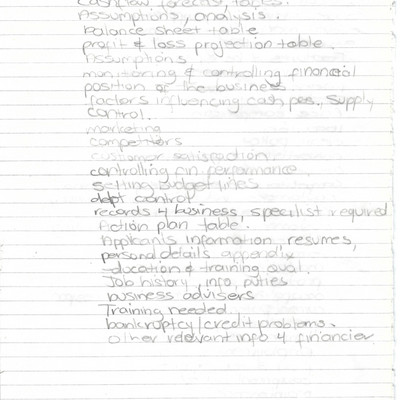 Cashflow forecast, tables.
Assumptions, analysis.
balance sheet table
profit & loss projection table.
Assumptions
monitoring & controlling financial
position of the business.
factors influencing cash pos., supply
control.
marketing
competitors
customer satisfaction
controlling fin performance
setting budget lines
debt control
records 4 business, specilist required
Action plan table.
Applicants information, resumes,
personal details appendix
education & training qual.
Job history, info, duties
business advisers
Training needed
bankruptcy/credit problems.
other relevant info 4 financier